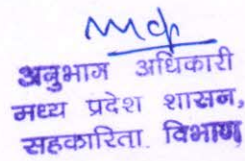 अनुभाग अधिकारी
मध्य प्रदेश शासन,
सहकारिता. विभाग